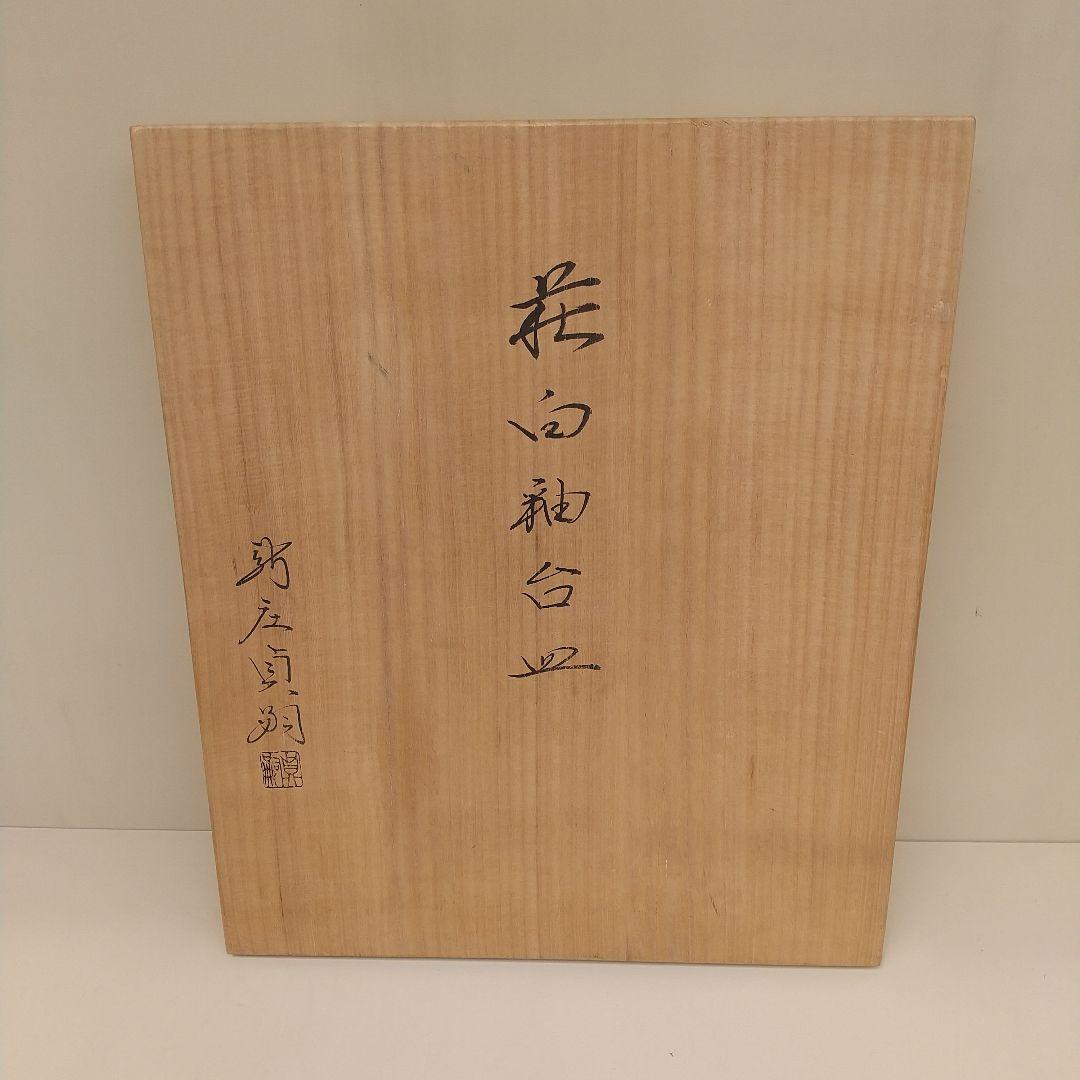 萩白釉台皿
新庄貞嗣